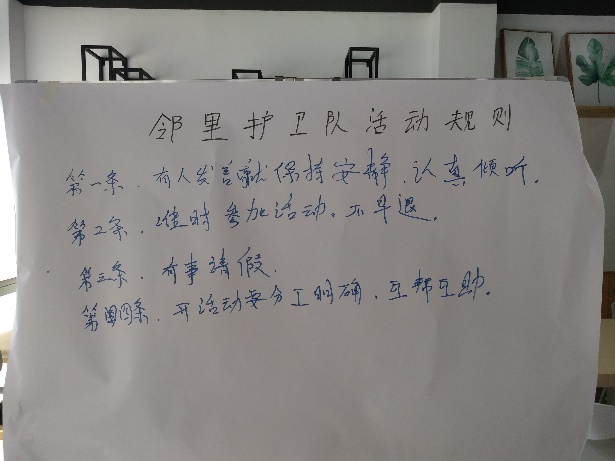 邻里护卫队活动规则
第一条、有人发言就保持安静、认真倾听。
第二条、准时参加活动。不早退。
第三条、有事请假.
第四条、开活动要分工明确、互帮互助。